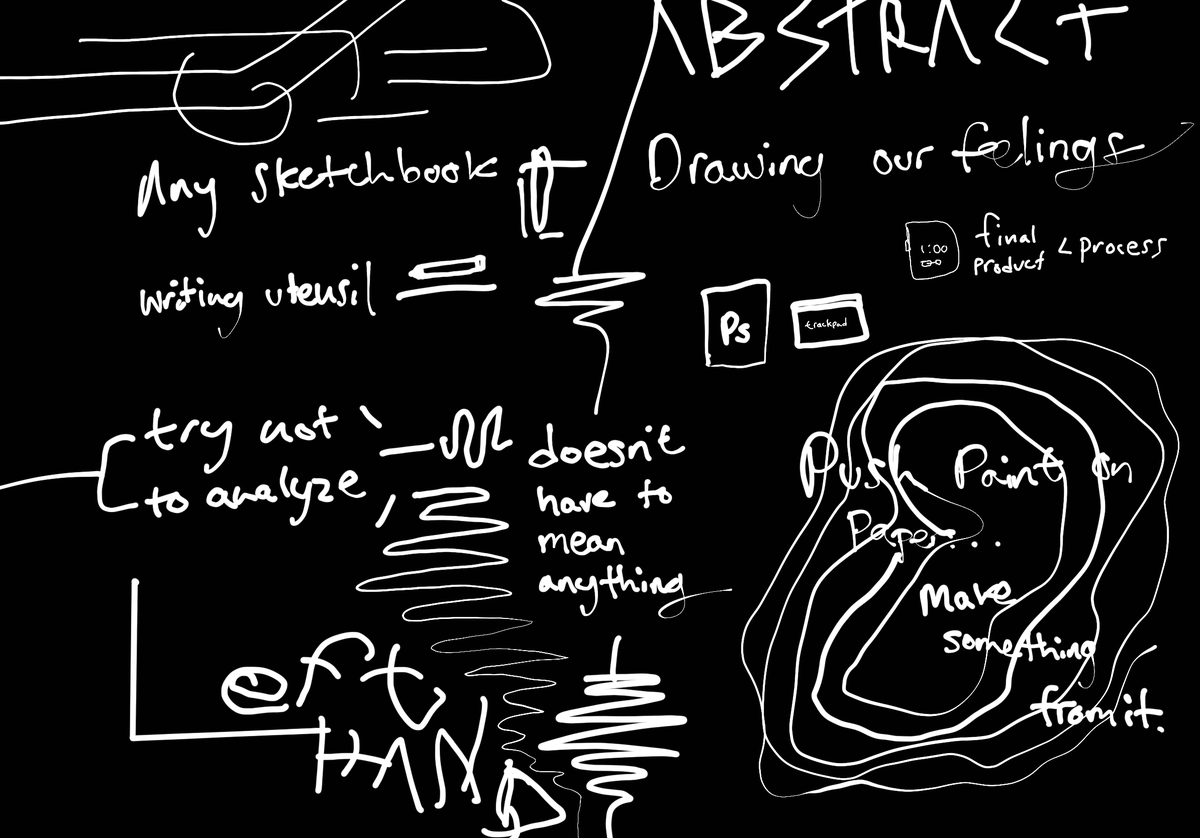 ABSTRACT
Any sketchbook
Drawing our feelings
1:00
final
product < process
writing utensil
Ps
trackpad
try not
to analyze
doesn't
have to
mean
anything
Push Paint on
Paper...
Make
something
from it.
left
HAND